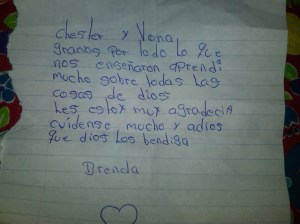 chester y Vena
gracias por todo lo que
nos enseñaron aprendi
mucho sobre todas las
cosas de dios
les estoy muy agradecia
cuidense mucho y adios
que dios los bendiga
Brenda